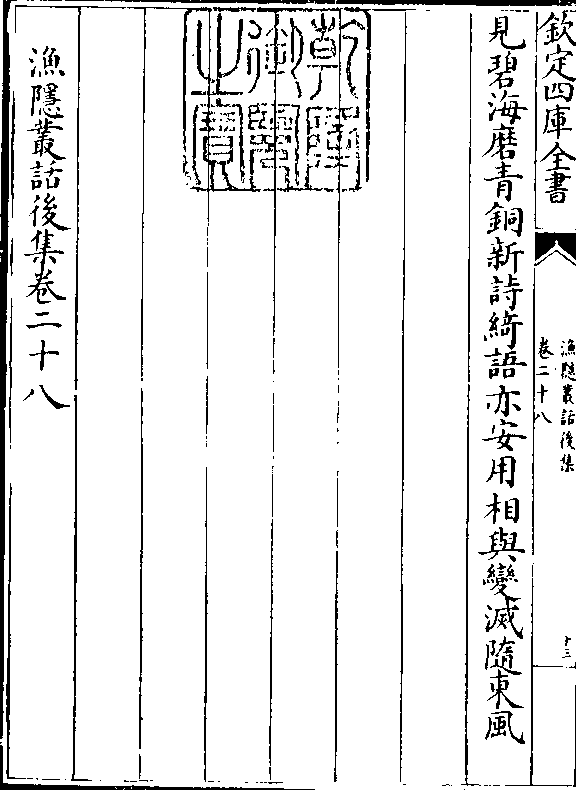 欽定四庫全書
漁隱叢話後集
卷二十八
十三
見碧海磨青銅新詩綺語亦安用相與變滅隨東風
乾隆御覽之寶
漁隱叢話後集卷二十八